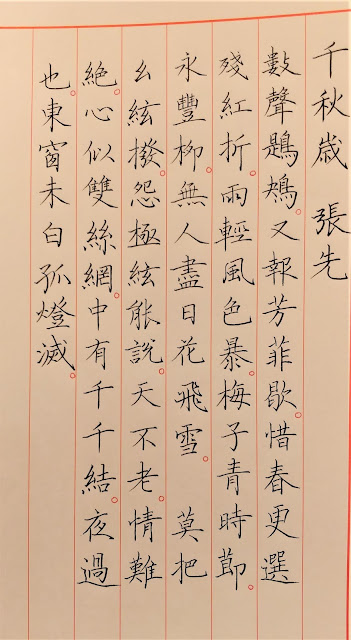 千秋歲 張先
數聲鶗鴂。又報芳菲歇。惜春更選
殘紅折。雨輕風色暴。梅子青時節。
永豐柳。無人盡日花飛雪。 莫把
幺絃撥。怨極絃能說。天不老。情難
絕。心似雙絲網。中有千千結。夜過
也。東窗未白孤燈滅。